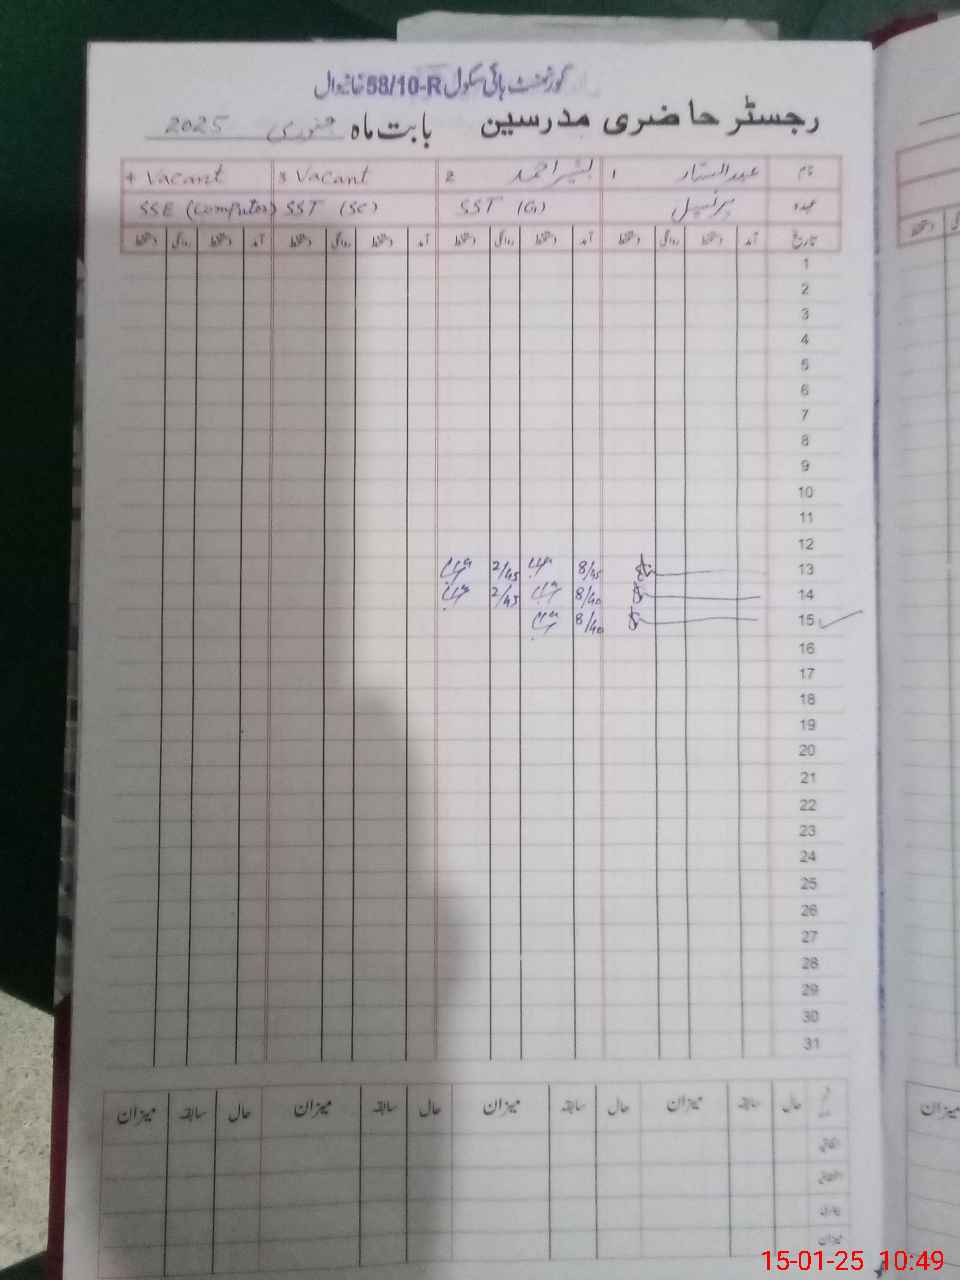 گورنمنٹ ہائی سکول 58/10-R خانیوال
رجسٹر حاضری مدرسین بابت ماہ جنوری 2025
نام عبدالستار 1 بشیر احمد 2 Vacant 3 Vacant 4
عہدہ پرنسپل SST (G) SST (SC) SSE (Computer)
تاریخ آمد دستخط روانگی دستخط آمد دستخط روانگی دستخط آمد دستخط روانگی دستخط آمد دستخط روانگی دستخط
1
2
3
4
5
6
7
8
9
10
11
12
13 8/45 2/45
14 8/40 2/45
15 8/40
16
17
18
19
20
21
22
23
24
25
26
27
28
29
30
31
حال سابقہ میزان حال سابقہ میزان حال سابقہ میزان حال سابقہ میزان
اتفاقیہ
بیماری
میزان
میزان
15-01-25 10:49